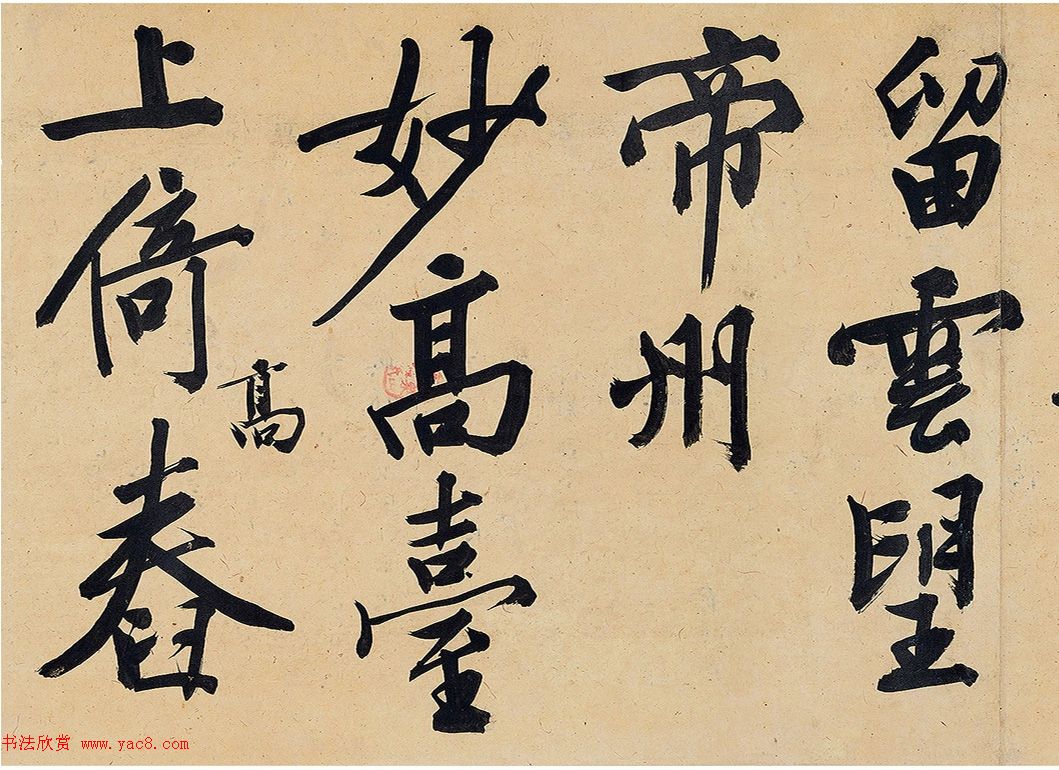 留雲望
帝州
妙高臺
上倚高舂
书法欣赏 www.yac8.com